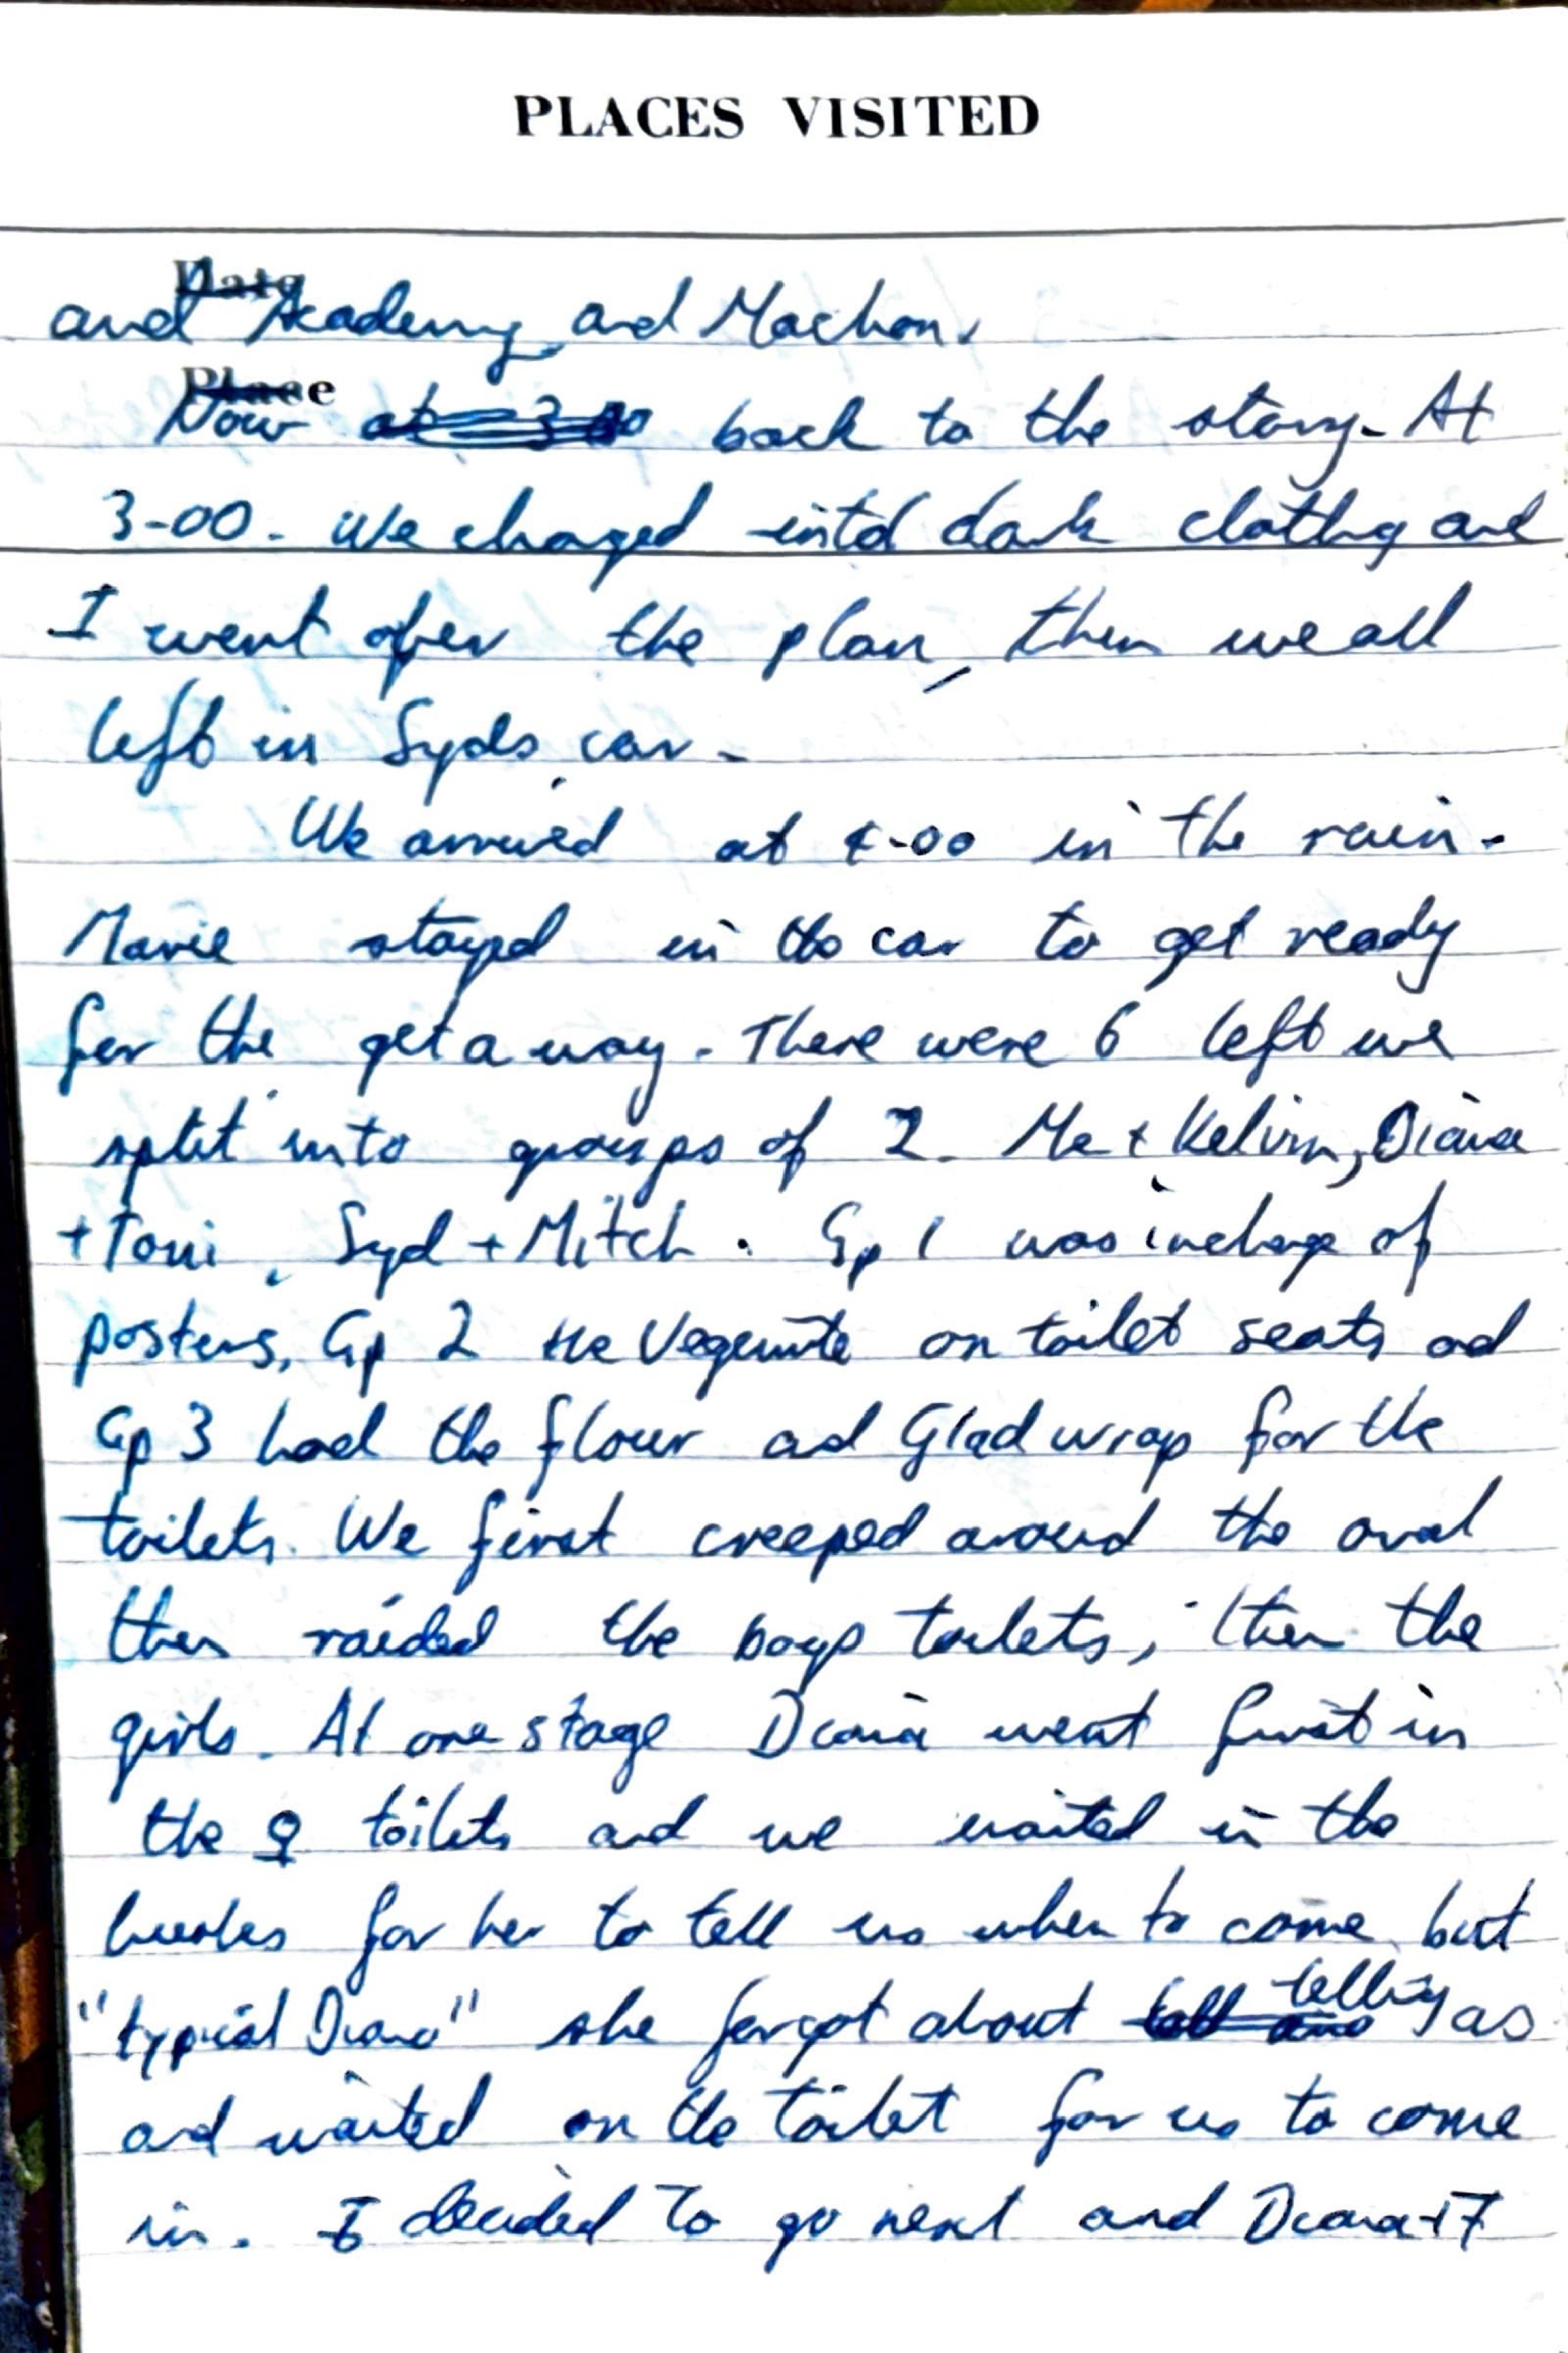 PLACES VISITED
Date
and Academy and Machon.
Place
Now at 3 00 back to the story. At
3-00. We changed into dark clothing and
I went over the plan, then we all
left in Syds car.
We arrived at 4-00 in the rain.
Marie stayed in the car to get ready
for the get a way. There were 6 left we
split into groups of 2. Me + Kelvin, Diana
+ Toni, Syd + Mitch. Gp 1 was incharge of
posters, Gp 2 the Vegemite on toilet seats and
Gp 3 had the flour and Glad wrap for the
toilets. We first creeped around the oval
then raided the boys toilets, then the
girls. At one stage Diana went first in
the ♀ toilets and we waited in the
bushes for her to tell us when to come but
"typical Diana" she forgot about telling us
and waited on the toilet for us to come
in. I decided to go next and Diana + T